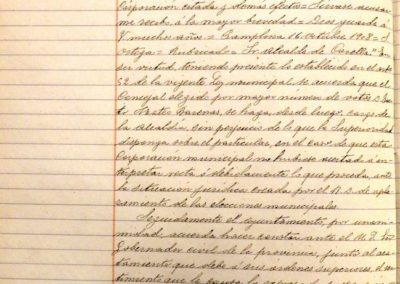 Corporación citada y demás efectos = Sírvase acusar-
me recibo, á la mayor brevedad = Dios guarde á
V. muchos años = Pamplona 16 Octubre 1908 = J.
Ortega = Rubricado = Sr. Alcalde de Corella." En
su virtud, teniendo presente lo establecido en el art.
52 de la vigente Ley municipal se acuerda que el
Concejal elegido por mayor número de votos D.
se haga, desde luego, cargo de
la Alcaldía, sin perjuicio de lo que la Superioridad
disponga sobre el particular, en el caso de que esta
Corporación municipal no hubiese acertado á in-
terpretar recta y debidamente lo que proceda, ante
la situación jurídica creada por el R. D. de apla-
zamiento de las elecciones municipales.
Seguidamente el Ayuntamiento, por unani-
midad, acuerda hacer constar ante el M. I. Sr.
Gobernador civil de la provincia, junto al aca-
tamiento que debe á sus ordenes superiores, el sen-
timiento que le causa la